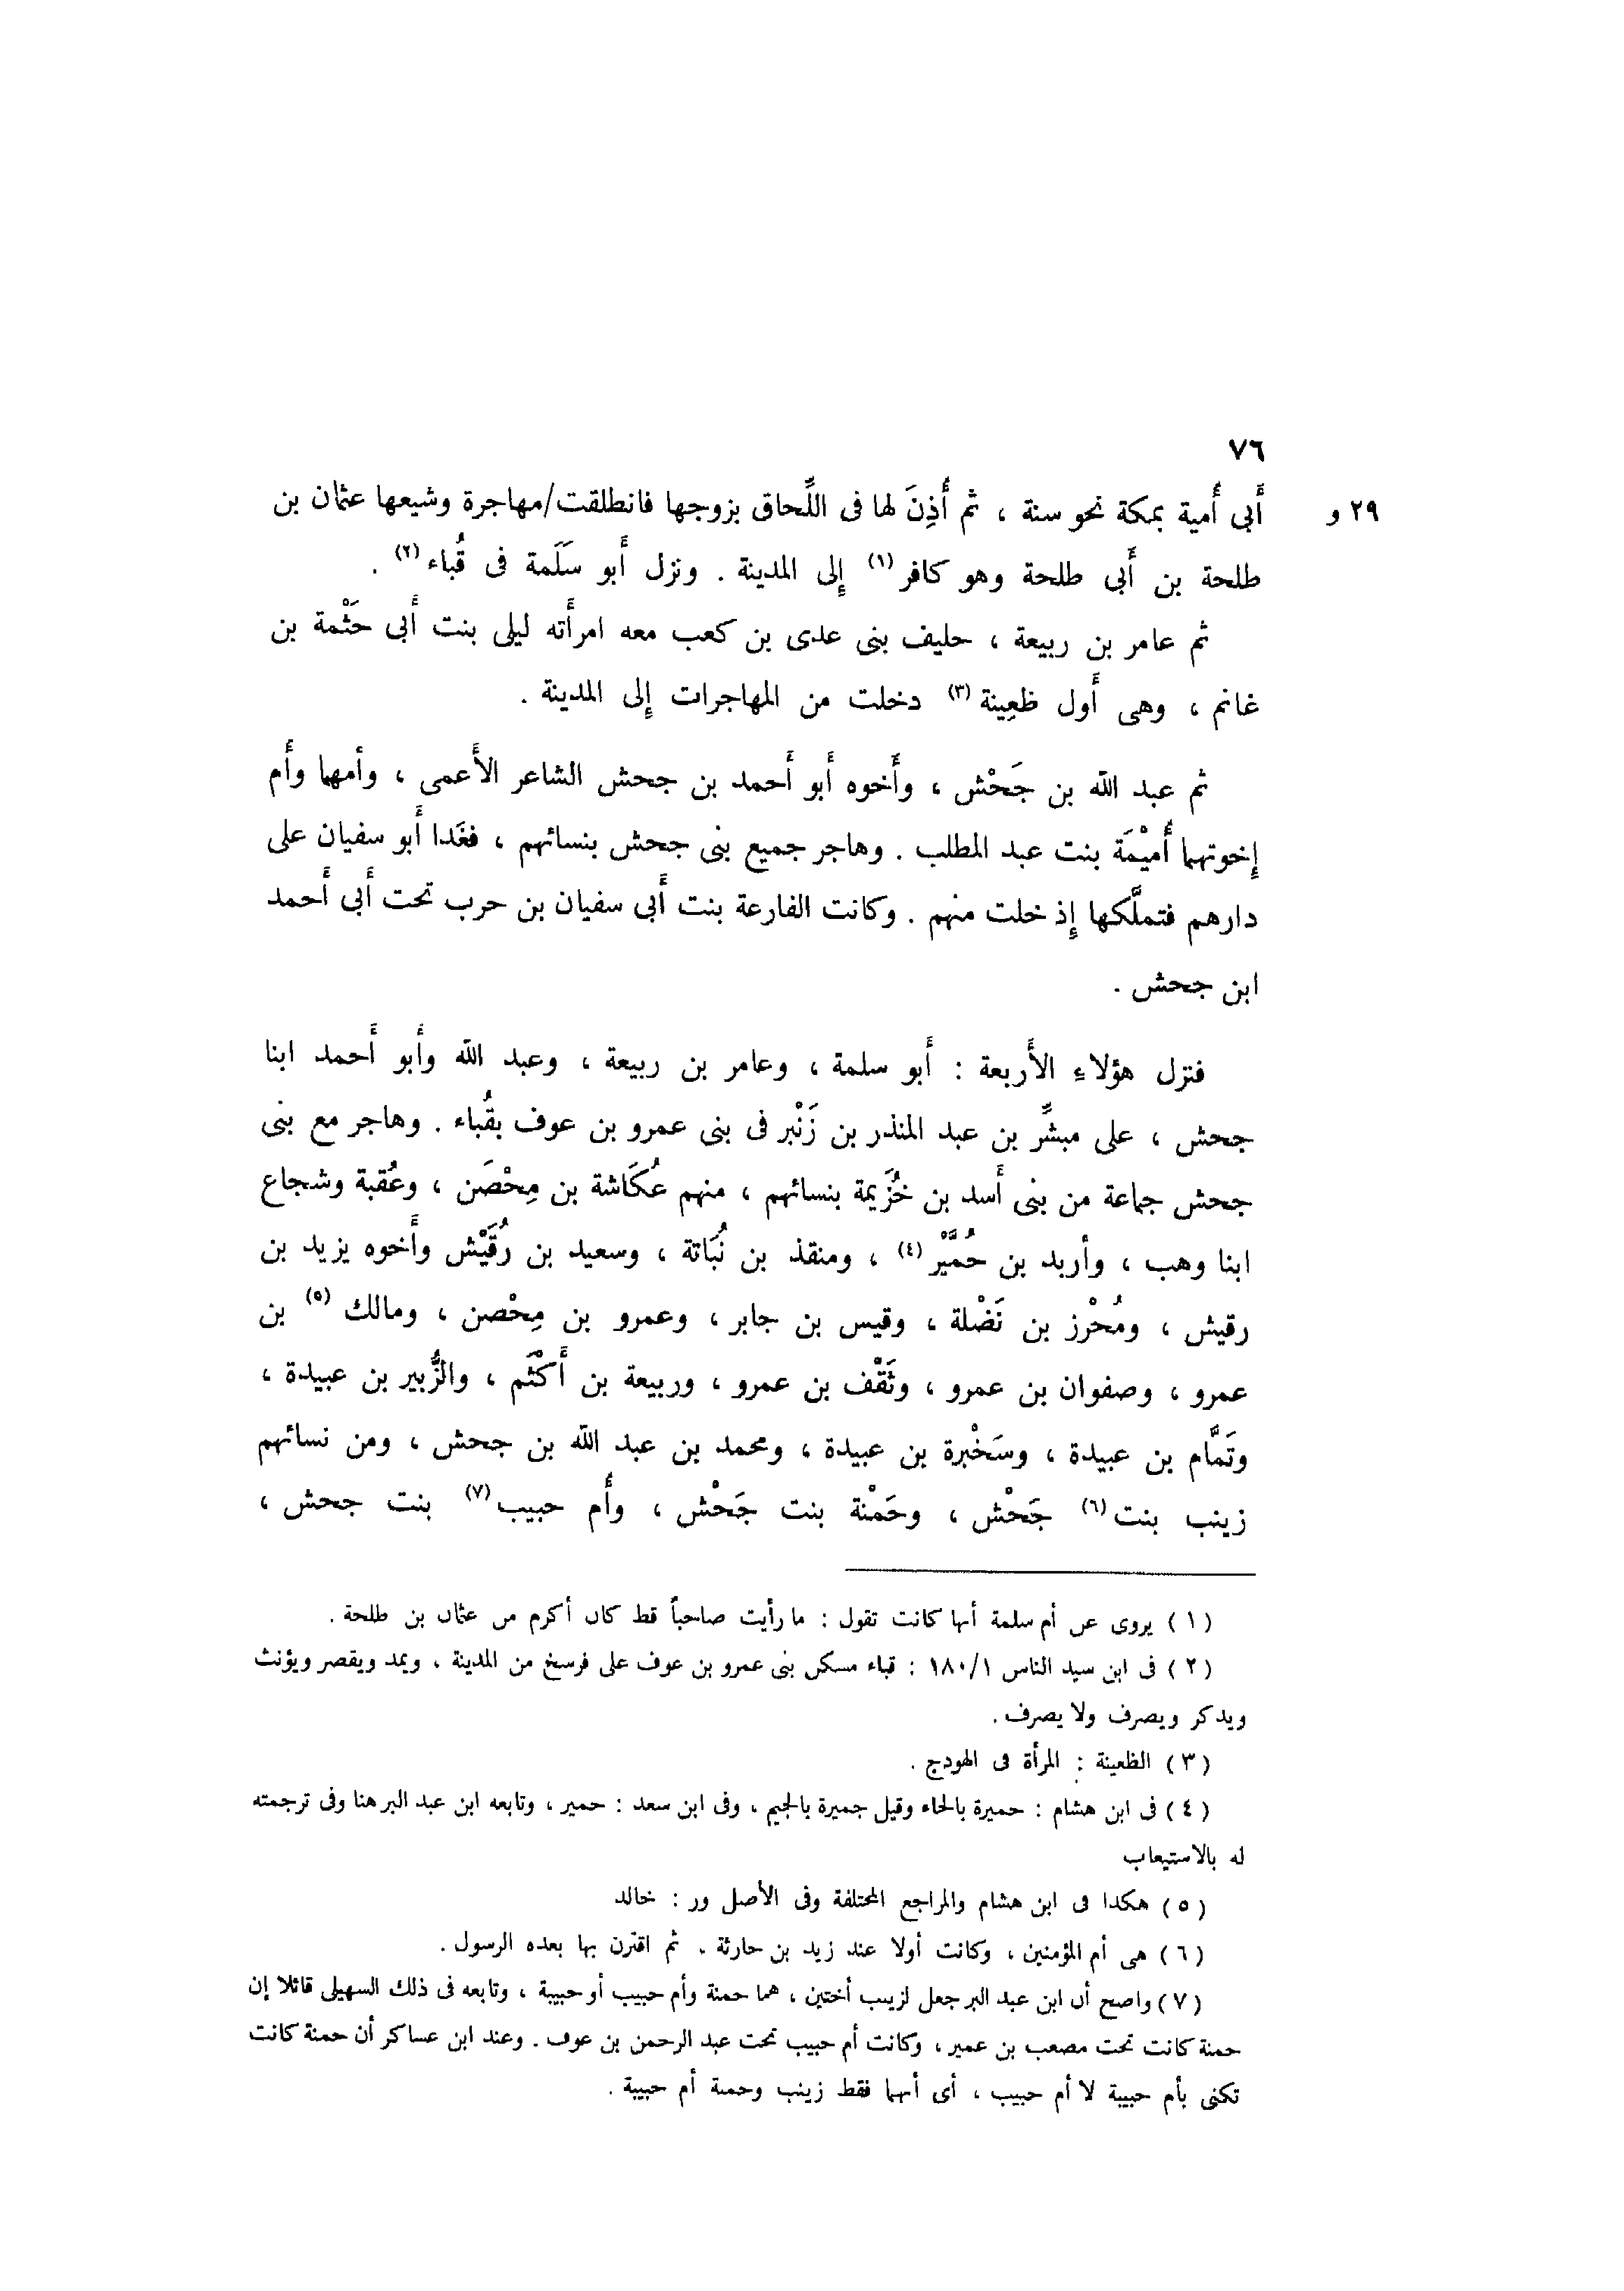 ٧٦
أَبى أُمية بمكة نحو سنة ، ثم أُذِنَ لها فى اللِّحاق بزوجها فانطلقت/مهاجرة وشيعها عثمان بن
٢٩ و
طلحة بن أَبى طلحة وهو كافر (١) إلى المدينة . ونزل أَبو سَلَمة فى قُباء (٢) .
ثم عامر بن ربيعة ، حليف بنى عدى بن كعب معه امرأَته ليلى بنت أَبى حَثْمة بن
غانم ، وهى أَول ظعِينة (٣) دخلت من المهاجرات إِلى المدينة .
ثم عبد الله بن جَحْش ، وأَخوه أَبو أَحمد بن جحش الشاعر الأَعمى ، وأمهما وأُم
إِخوتهما أُميْمَة بنت عبد المطلب . وهاجر جميع بنى جحش بنسائهم ، فغَدا أَبو سفيان على
دارهم فتملَّكها إِذ خلت منهم . وكانت الفارعة بنت أَبى سفيان بن حرب تحت أَبى أَحمد
ابن جحش .
فنزل هؤلاءِ الأَربعة : أَبو سلمة ، وعامر بن ربيعة ، وعبد الله وأَبو أَحمد ابنا
جحش ، على مبشِّر بن عبد المنذر بن زَنْبر فى بنى عمرو بن عوف بقُباء . وهاجر مع بنى
جحش جماعة من بنى أَسد بن خُزَيمة بنسائهم ، منهم عُكَاشة بن مِحْصَن ، وعُقبة وشجاع
ابنا وهب ، وأربد بن حُمَيَّرْ (٤) ، ومنقذ بن نُبَاتة ، وسعيد بن رُقَيْش وأَخوه يزيد بن
رقيش ، ومُحْرز بن نَضْلة ، وقيس بن جابر ، وعمرو بن مِحْصن ، ومالك (٥) بن
عمرو ، وصفوان بن عمرو ، وثَقْف بن عمرو ، وربيعة بن أَكْثَم ، والزُّبير بن عبيدة ،
وتَمَّام بن عبيدة ، وسَخْبرة بن عبيدة ، ومحمد بن عبد الله بن جحش ، ومن نسائهم
زينب بنت (٦) جَحْش ، وحَمْنة بنت جَحْش ، وأُم حبيب (٧) بنت جحش ،
( ١ ) يروى عن أم سلمة أنها كانت تقول : ما رأيت صاحباً قط كان أكرم من عثمان بن طلحة .
( ٢ ) فى ابن سيد الناس ١٨٠/١ : قباء مسكن بنى عمرو بن عوف على فرسخ من المدينة ، ويمد ويقصر ويؤنث
ويذكر ويصرف ولا يصرف .
( ٣ ) الظعينة : المرأة فى الهودج .
( ٤ ) فى ابن هشام : حميرة بالحاء وقيل جميرة بالجيم ، وفى ابن سعد : حمير ، وتابعه ابن عبد البر هنا وفى ترجمته
له بالاستيعاب
( ٥ ) هكذا فى ابن هشام والمراجع المختلفة وفى الأصل ور : خالد
( ٦ ) هى أم المؤمنين ، وكانت أولا عند زيد بن حارثة . ثم اقترن بها بعده الرسول .
( ٧ ) واضح أن ابن عبد البر جعل لزينب أختين ، هما حمنة وأم حبيب أو حبيبة ، وتابعه فى ذلك السهيلى قائلا إن
حمنة كانت تحت مصعب بن عمير ، وكانت أم حبيب تحت عبد الرحمن بن عوف . وعند ابن عساكر أن حمنة كانت
تكنى بأم حبيبة لا أم حبيب ، أى أنهما فقط زينب وحمنة أم حبيبة .